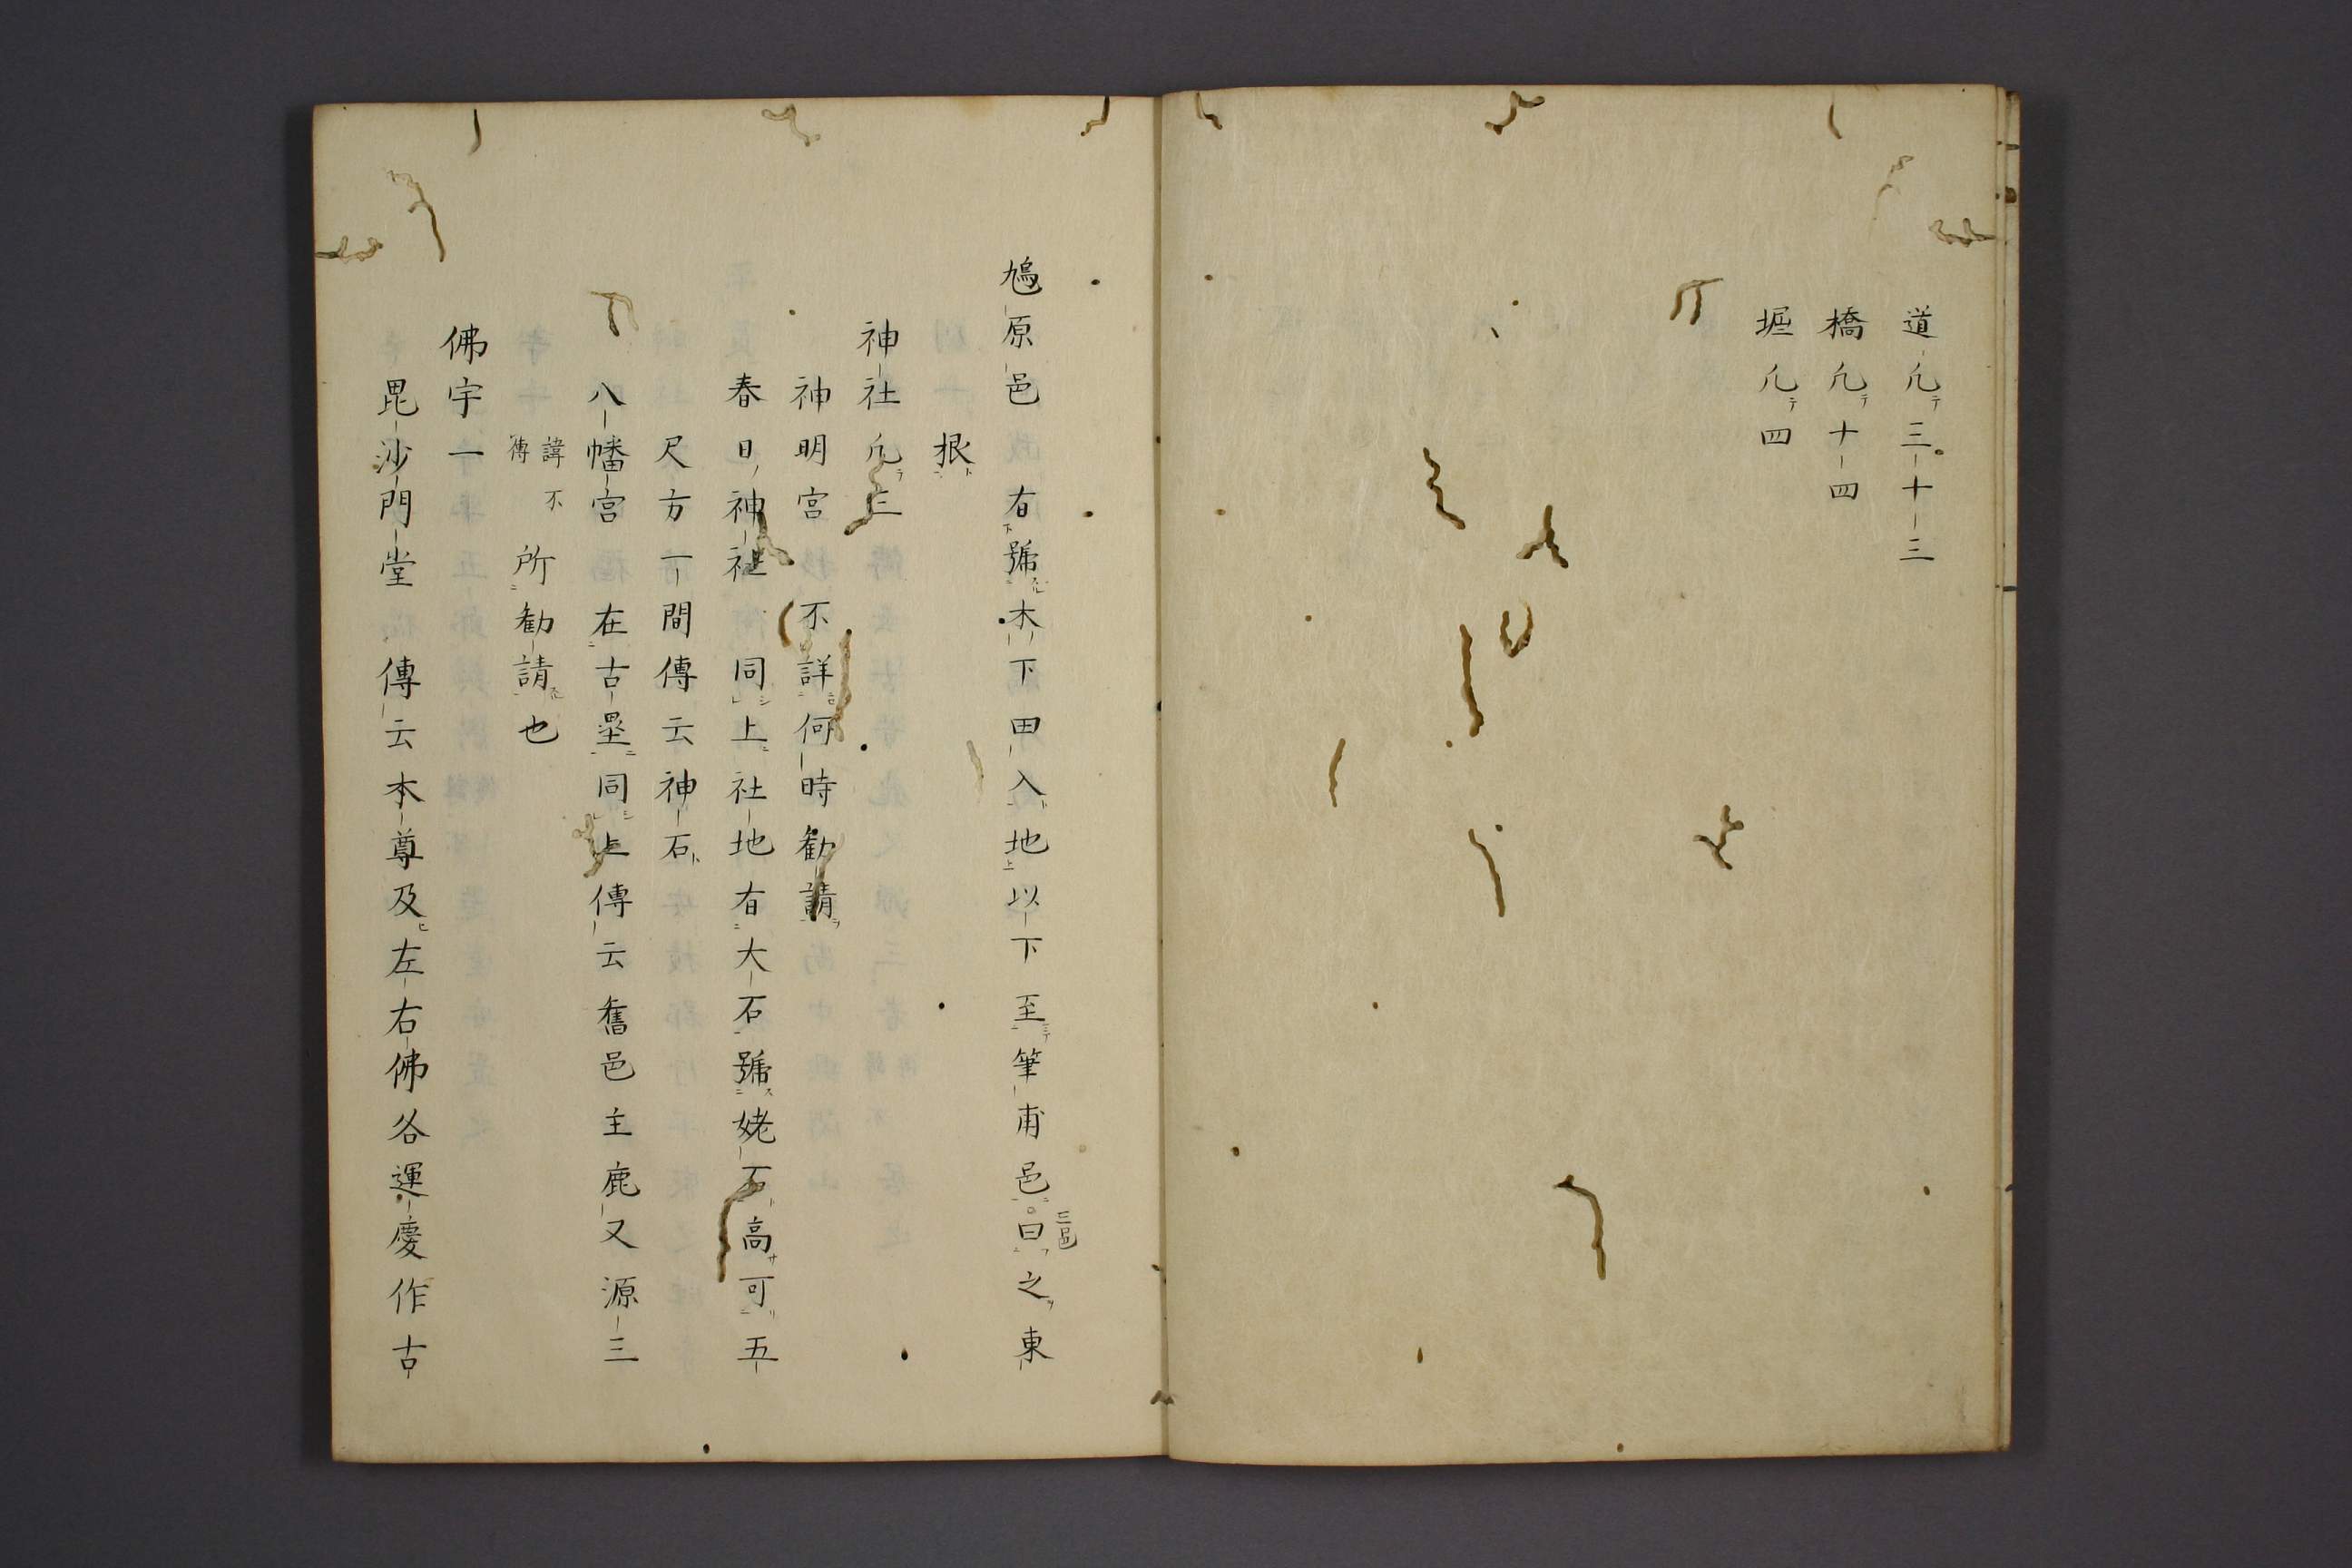 道凢三十三
橋凢十四
堀凢四
鳩原邑 有號木下田入地以下至筆甫邑三邑曰之東
根
神社凢三
神明宮 不詳何時勧請
春日神社 同上社地有大石號姥石高可五
尺方一間傳云神石
八幡宮 在古壘同上傳云舊邑主鹿又源三
諱不傳所勧請也
佛宇一
毘沙門堂 傳云本尊及左右佛各運慶作古